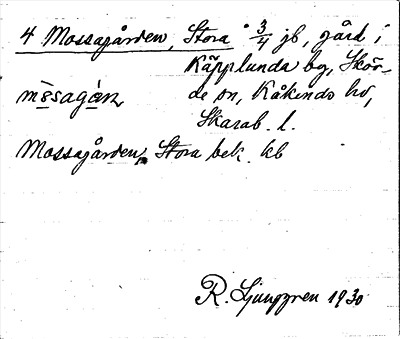 4 Mossagården, Stora 3/4 jb, gård i
Käpplunda by, Sköv-
de sn, Kåkinds hd,
Skarab. l.
mòsagàn
Mossagården, Stora bek. kb
R. Ljunggren 1930